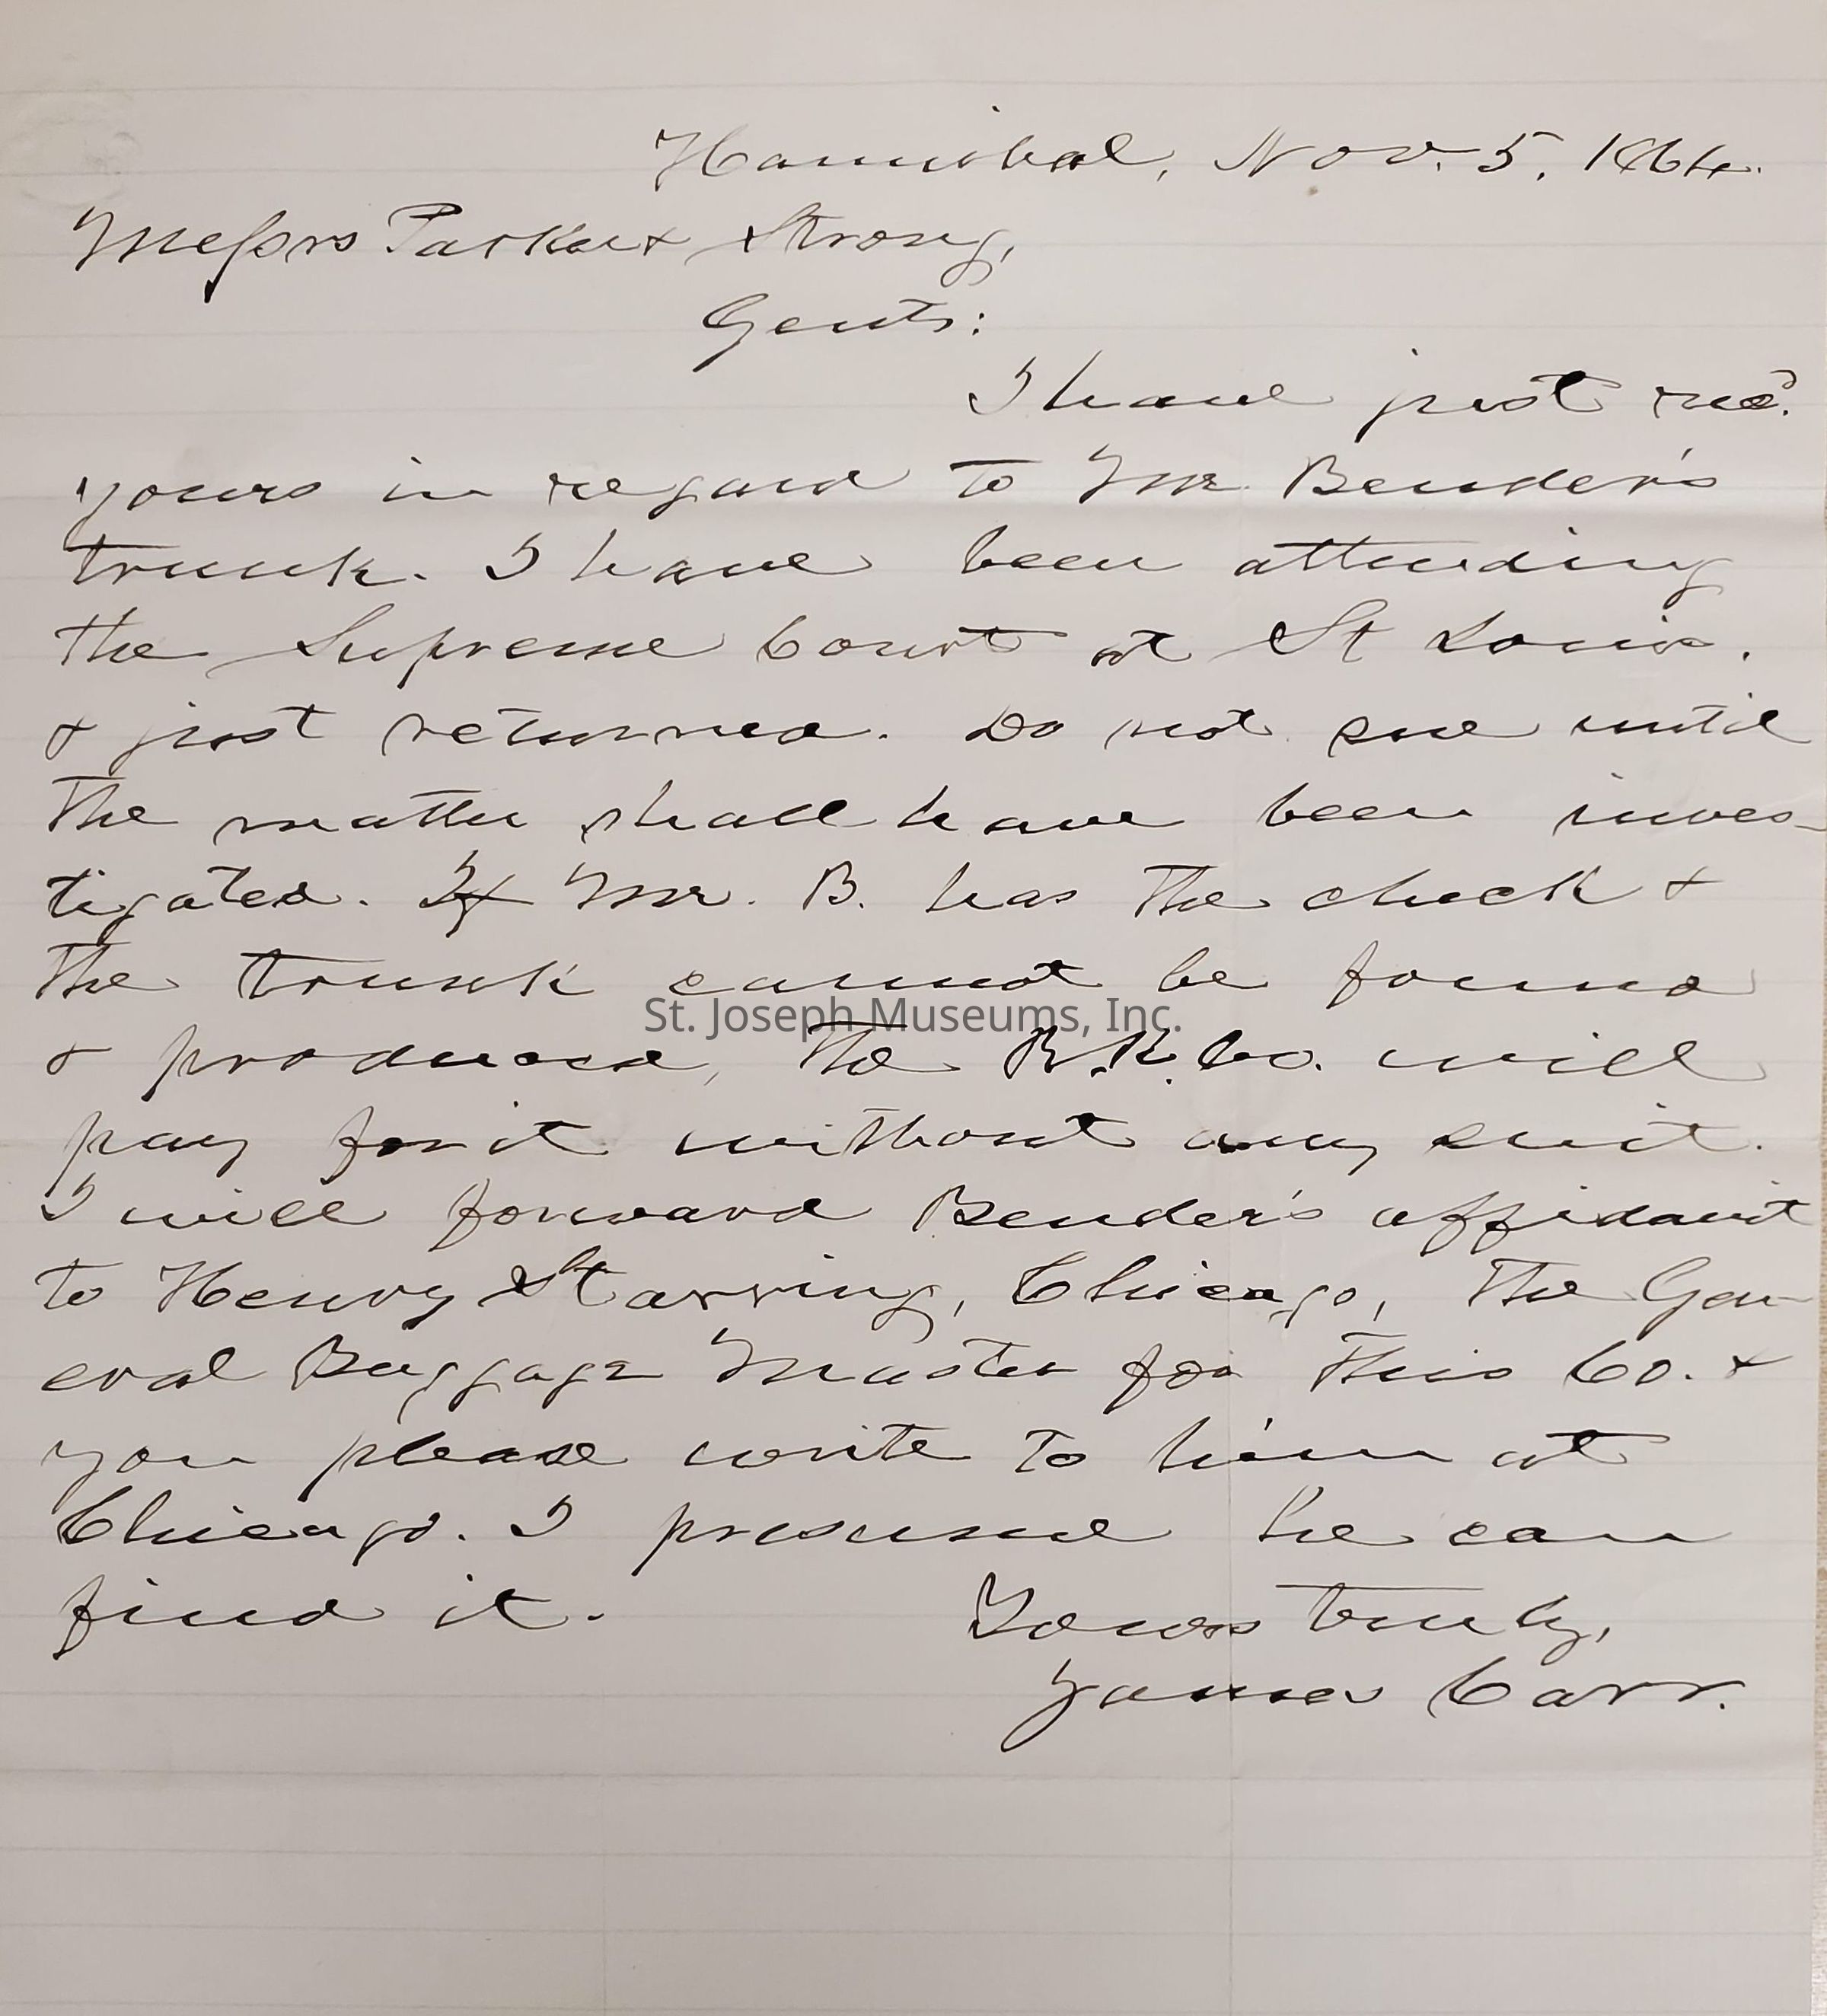 Hannibal, Nov. 5, 1864.
Messrs Parker & Strong,
Gents:
I have just recd.
yours in regard to Mr. Bender's
trunk. I have been attending
the Supreme Court at St Louis.
& just returned. Do not sue until
the matter shall have been inves-
tigated. If Mr. B. has the check &
the trunk cannot be found
St. Joseph Museums, Inc.
& produced, the R.R. Co. will
pay for it without any suit.
I will forward Bender's affidavit
to Henry Starring, Chicago, the Gen-
eral Baggage Master for this Co. &
you please write to him at
Chicago. I presume he can
find it.
Yours truly,
James Carr.